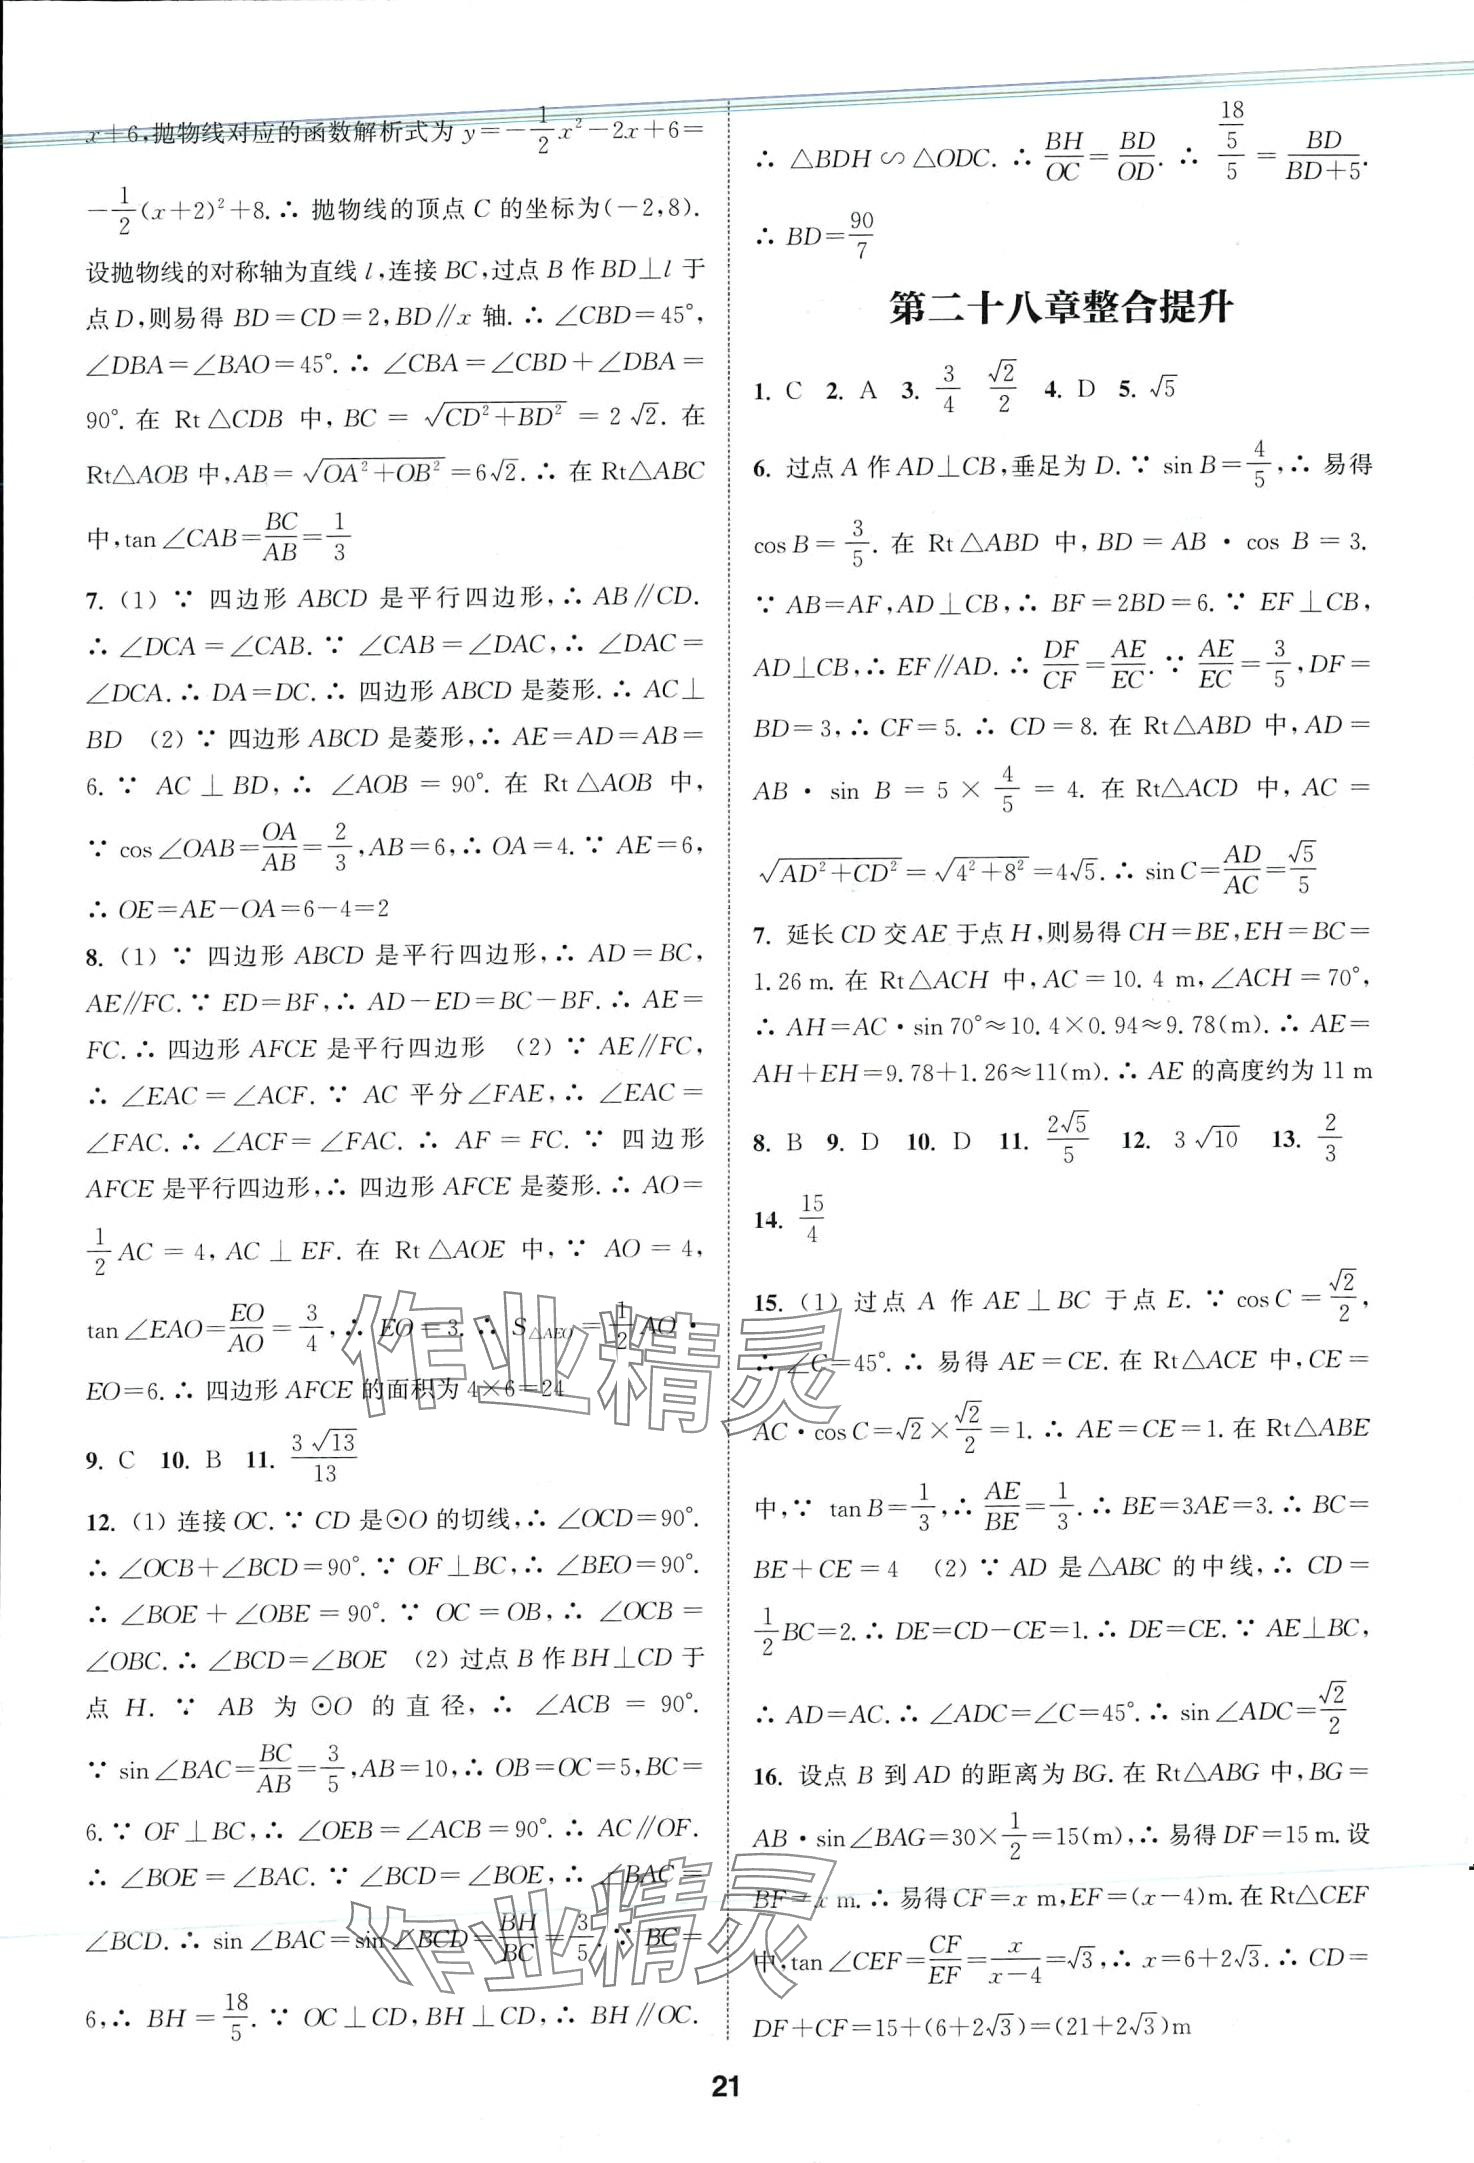 x+6,抛物线对应的函数解析式为 y=-1/2x²-2x+6=
-1/2(x+2)²+8.∴ 抛物线的顶点 C 的坐标为(-2,8).
设抛物线的对称轴为直线 l,连接 BC,过点 B 作 BD⊥l 于
点 D,则易得 BD=CD=2,BD∥x 轴.∴ ∠CBD=45°,
∠DBA=∠BAO=45°.∴ ∠CBA=∠CBD+∠DBA=
90°.在 Rt△CDB 中,BC=√(CD²+BD²)=2√2.在
Rt△AOB 中,AB=√(OA²+OB²)=6√2.∴ 在 Rt△ABC
中,tan∠CAB=BC/AB=1/3
7. (1) ∵ 四边形 ABCD 是平行四边形,∴ AB∥CD.
∴ ∠DCA=∠CAB.∵ ∠CAB=∠DAC,∴ ∠DAC=
∠DCA.∴ DA=DC.∴ 四边形 ABCD 是菱形.∴ AC⊥
BD (2) ∵ 四边形 ABCD 是菱形,∴ AE=AD=AB=
6.∵ AC⊥BD,∴ ∠AOB=90°.在 Rt△AOB 中,
∵ cos∠OAB=OA/AB=2/3,AB=6,∴ OA=4.∵ AE=6,
∴ OE=AE-OA=6-4=2
8. (1) ∵ 四边形 ABCD 是平行四边形,∴ AD=BC,
AE∥FC.∵ ED=BF,∴ AD-ED=BC-BF.∴ AE=
FC.∴ 四边形 AFCE 是平行四边形 (2) ∵ AE∥FC,
∴ ∠EAC=∠ACF.∵ AC 平分∠FAE,∴ ∠EAC=
∠FAC.∴ ∠ACF=∠FAC.∴ AF=FC.∵ 四边形
AFCE 是平行四边形,∴ 四边形 AFCE 是菱形.∴ AO=
1/2AC=4,AC⊥EF.在 Rt△AOE 中,∵ AO=4,
tan∠EAO=EO/AO=3/4,∴ EO=3.∴ S△AEO=1/2AO·
EO=6.∴ 四边形 AFCE 的面积为 4×6=24
9. C 10. B 11. 3√13/13
12. (1) 连接 OC.∵ CD 是⊙O 的切线,∴ ∠OCD=90°.
∴ ∠OCB+∠BCD=90°.∵ OF⊥BC,∴ ∠BEO=90°.
∴ ∠BOE+∠OBE=90°.∵ OC=OB,∴ ∠OCB=
∠OBC.∴ ∠BCD=∠BOE (2) 过点 B 作 BH⊥CD 于
点 H.∵ AB 为⊙O 的直径,∴ ∠ACB=90°.
∵ sin∠BAC=BC/AB=3/5,AB=10,∴ OB=OC=5,BC=
6.∵ OF⊥BC,∴ ∠OEB=∠ACB=90°.∴ AC∥OF.
∴ ∠BOE=∠BAC.∵ ∠BCD=∠BOE,∴ ∠BAC=
∠BCD.∴ sin∠BAC=sin∠BCD=BH/BC=3/5.∵ BC=
6,∴ BH=18/5.∵ OC⊥CD,BH⊥CD,∴ BH∥OC.
∴ △BDH∽△ODC.∴ BH/OC=BD/OD.∴ (18/5)/5=BD/(BD+5).
∴ BD=90/7
第二十八章整合提升
1. C 2. A 3. 3/4 √2/2 4. D 5. √5
6. 过点 A 作 AD⊥CB,垂足为 D.∵ sin B=4/5,∴ 易得
cos B=3/5.在 Rt△ABD 中,BD=AB·cos B=3.
∵ AB=AF,AD⊥CB,∴ BF=2BD=6.∵ EF⊥CB,
AD⊥CB,∴ EF∥AD.∴ DF/CF=AE/EC.∵ AE/EC=3/5,DF=
BD=3,∴ CF=5.∴ CD=8.在 Rt△ABD 中,AD=
AB·sin B=5×4/5=4.在 Rt△ACD 中,AC=
√(AD²+CD²)=√(4²+8²)=4√5.∴ sin C=AD/AC=√5/5
7. 延长 CD 交 AE 于点 H,则易得 CH=BE,EH=BC=
1.26 m.在 Rt△ACH 中,AC=10.4 m,∠ACH=70°,
∴ AH=AC·sin 70°≈10.4×0.94≈9.78(m).∴ AE=
AH+EH=9.78+1.26≈11(m).∴ AE 的高度约为 11 m
8. B 9. D 10. D 11. 2√5/5 12. 3√10 13. 2/3
14. 15/4
15. (1) 过点 A 作 AE⊥BC 于点 E.∵ cos C=√2/2,
∴ ∠C=45°.∴ 易得 AE=CE.在 Rt△ACE 中,CE=
AC·cos C=√2×√2/2=1.∴ AE=CE=1.在 Rt△ABE
中,∵ tan B=1/3,∴ AE/BE=1/3.∴ BE=3AE=3.∴ BC=
BE+CE=4 (2) ∵ AD 是△ABC 的中线,∴ CD=
1/2BC=2.∴ DE=CD-CE=1.∴ DE=CE.∵ AE⊥BC,
∴ AD=AC.∴ ∠ADC=∠C=45°.∴ sin∠ADC=√2/2
16. 设点 B 到 AD 的距离为 BG.在 Rt△ABG 中,BG=
AB·sin∠BAG=30×1/2=15(m),∴ 易得 DF=15 m.设
BF=x m.∴ 易得 CF=x m,EF=(x-4)m.在 Rt△CEF
中,tan∠CEF=CF/EF=x/(x-4)=√3,∴ x=6+2√3.∴ CD=
DF+CF=15+(6+2√3)=(21+2√3)m
作业精灵
作业精灵
21